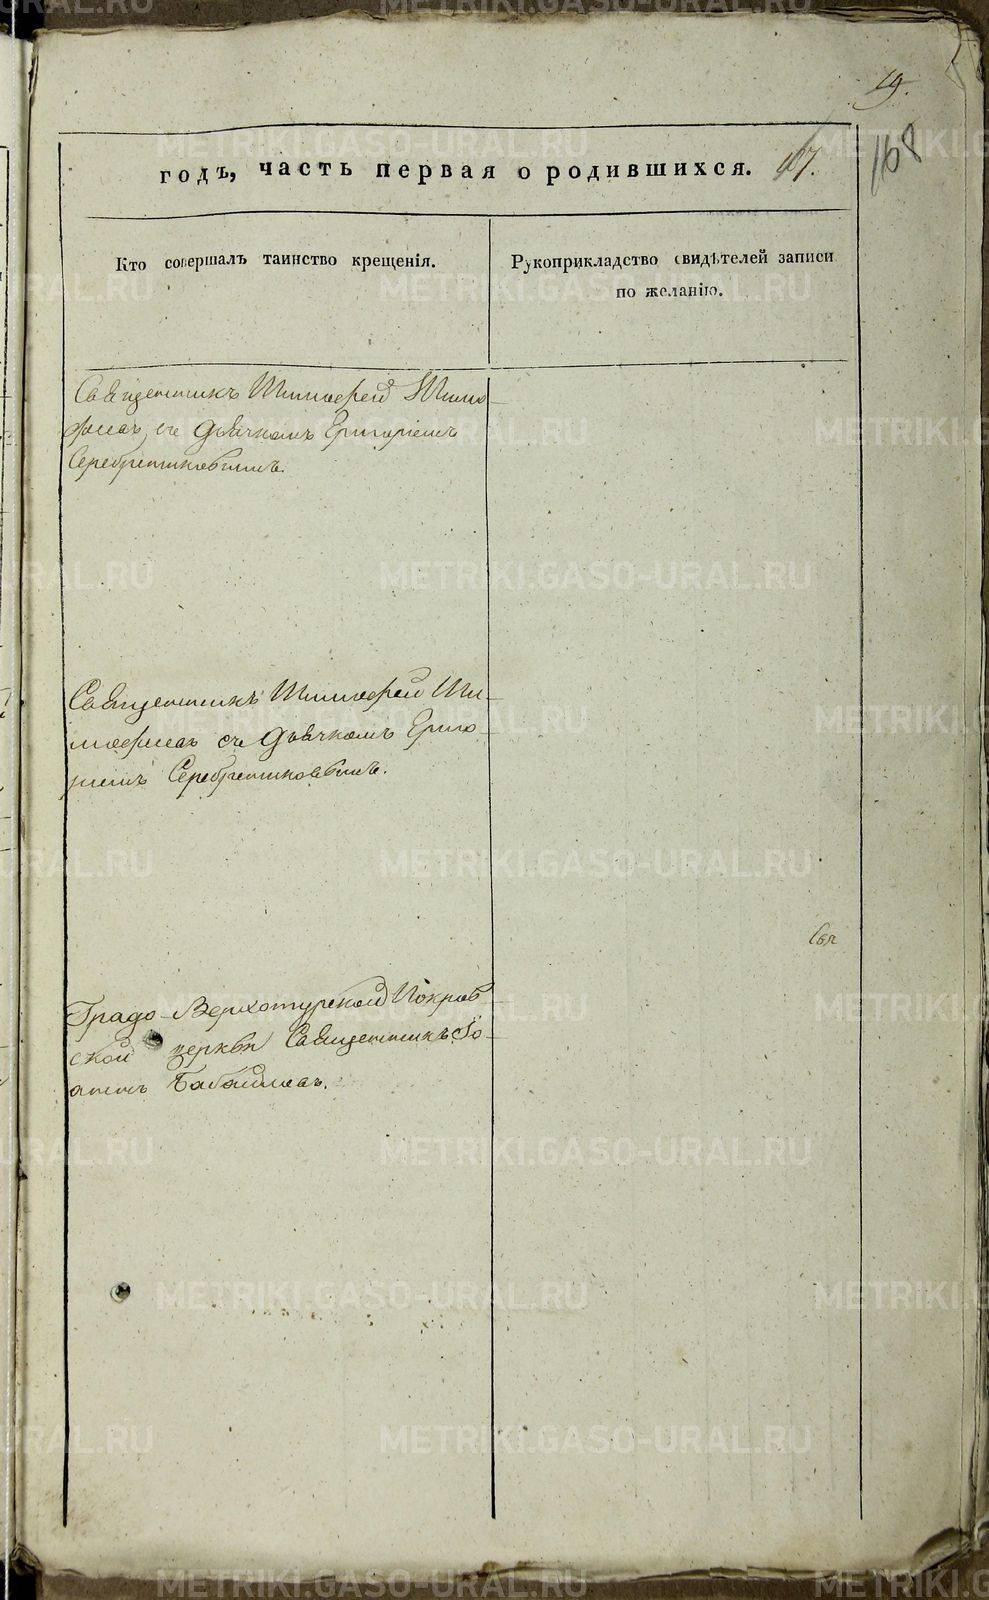 19.
168
годъ, часть первая о родившихся. 167.
Кто совершалъ таинство крещенія.
Рукоприкладство свидѣтелей записи
по желанію.
Священникъ Тимофей
съ дьячкомъ Григорiемъ
Серебрениковымъ.
Священникъ Тимофей
съ дьячкомъ Григо-
рiемъ Серебрениковымъ.
Градо-Верхотурской Покров
ской церкви Священникъ Iо-
аннъ
METRIKI.GASO-URAL.RU